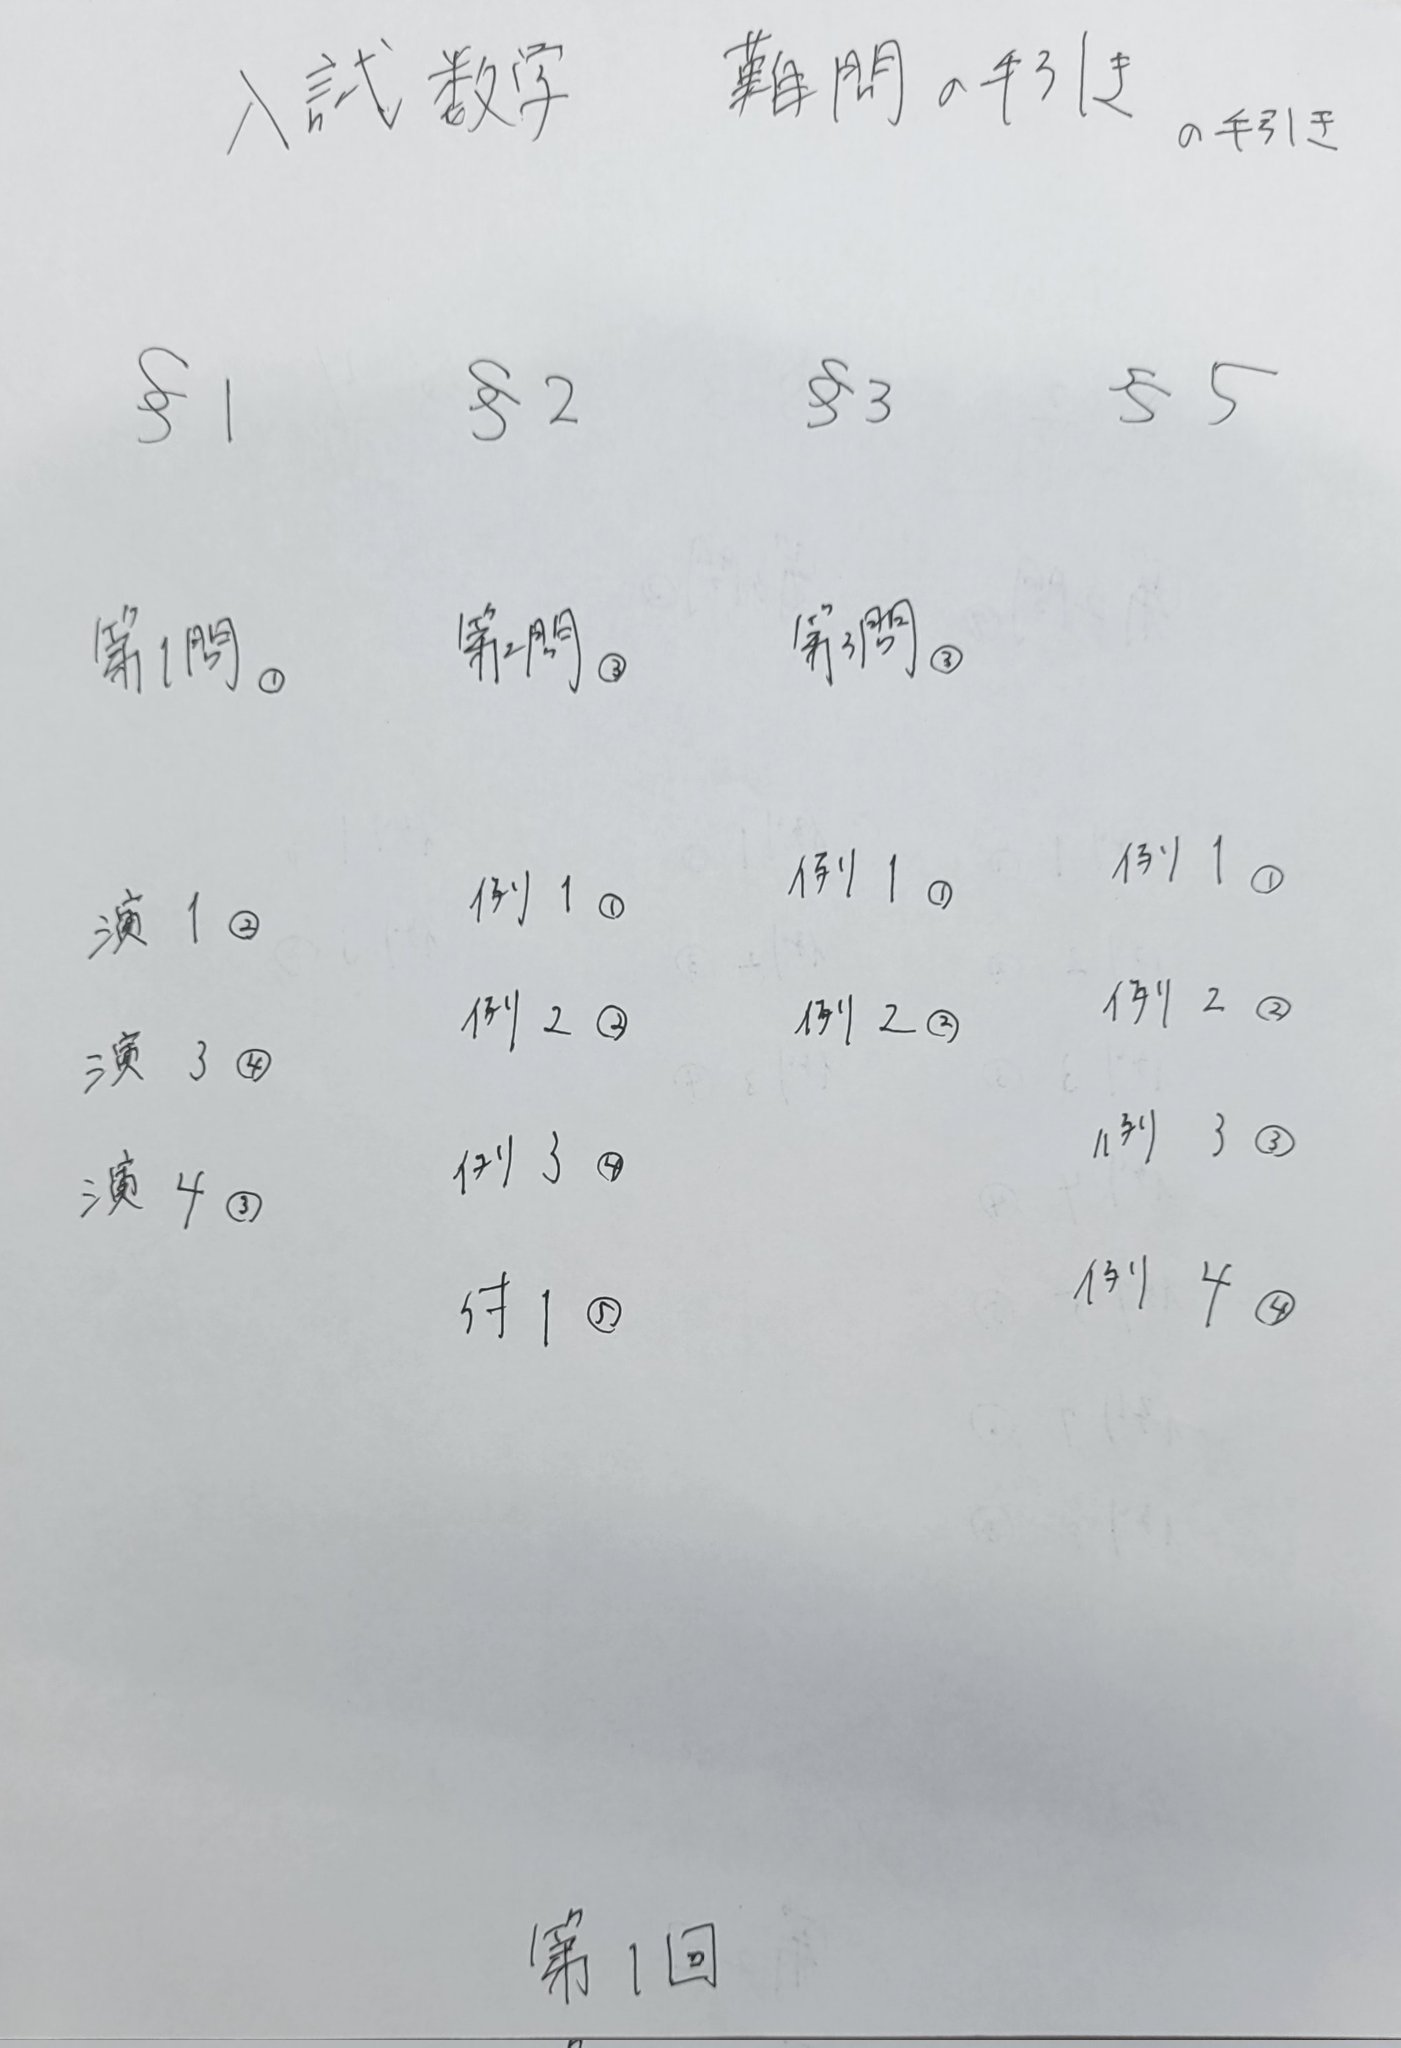 入試数学 難問の手引き の手引き
§1 §2 §3 §5
第1問① 第2問③ 第3問③
演1② 例1① 例1① 例1①
演3④ 例2② 例2② 例2②
演4③ 例3④ 例3③
付1⑤ 例4④
第1回